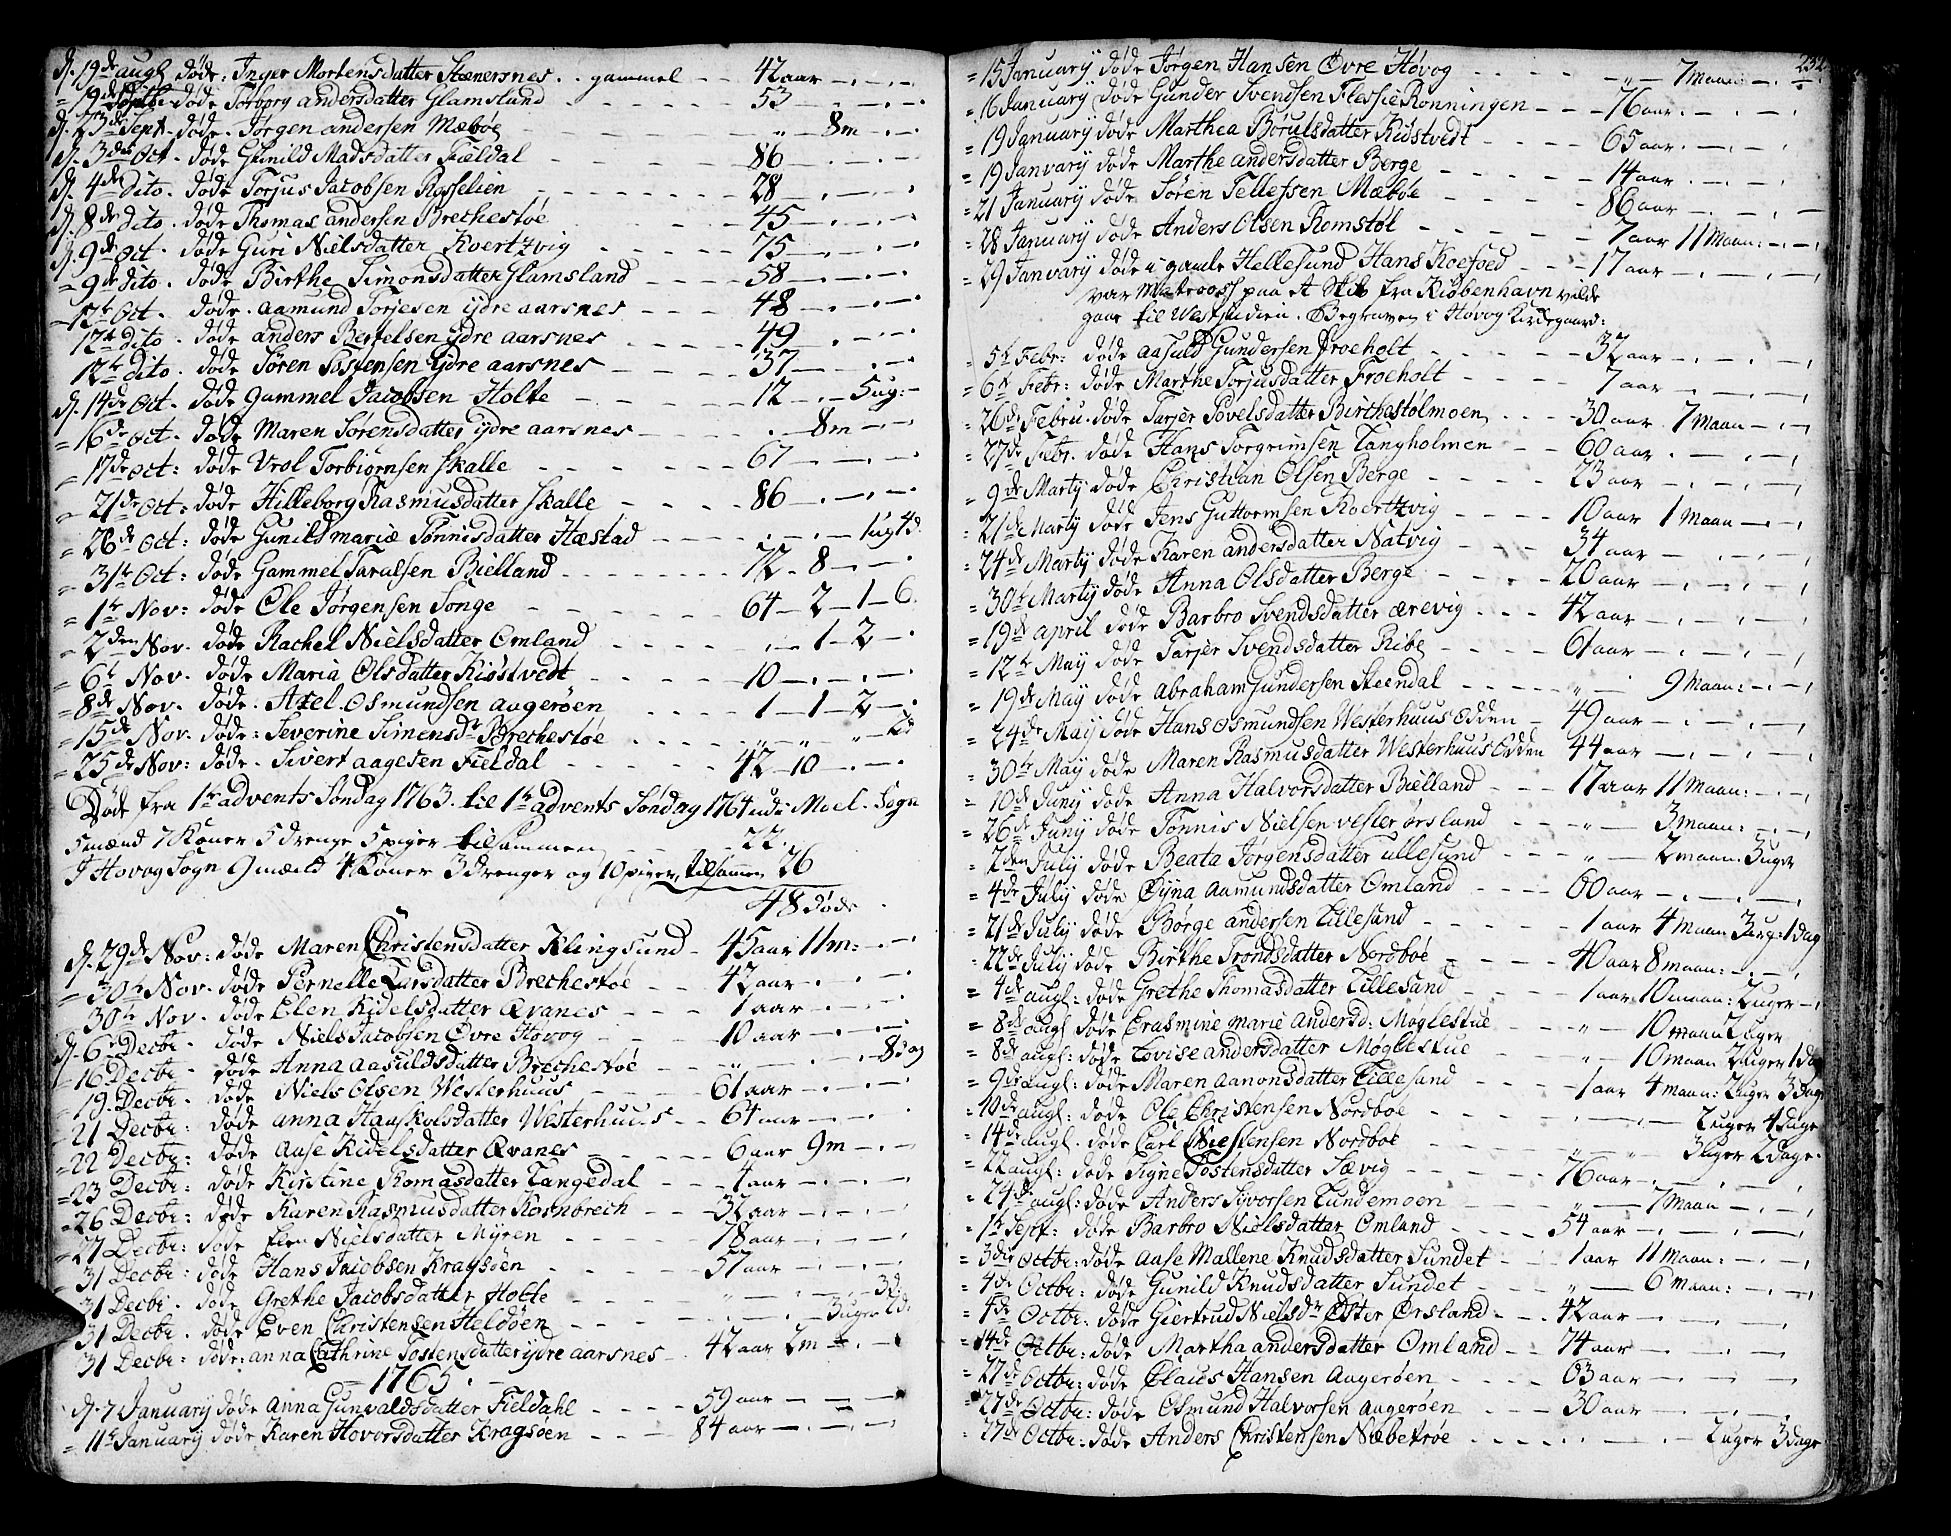 d. 19de augl døde: Inger Mortensdatter Stenersnes . . gammel - - 42 aar - . - . -
= 19de Septb. døde Torborg andersdatter Glamsland - - - 53 - . - . -
d. 23de Sept. døde. Jørgen andersen Mæbøe - - - „ - 8m - . -
d. 3die Oct. døde Gunild Madsdatter Fieldal - - - 86 - . - . -
d. 4de dito. døde Torjus Jacobsen Rosselien - - - 28 - . - . -
d. 8de dito. døde Thomas andersen Brechestøe - - - 45 - . - . -
d. 9de Oct. døde Guri Nielsdatter Kvertzvig - - - 75 - . - . -
= 9de dito. døde Birthe Simonsdatter Glamsland - - - 58 - . - . -
= 12te Oct. døde. aamund Torjesen ydre aarsnes - - - 48 - . - . -
12te dito. døde anders Bertelsen ydre aarsnes - - - 49 - . - . -
12te dito. døde Søren Tostensen ydre aarsnes - - - 37 - . - . -
d. 14de Oct. døde Gammel Jacobsen Holte - - - 12 - . - 5ug:
= 16de Oct. døde Maren Sørensdatter ydre aarsnes - - - . - 8m - . -
= 17de oct: døde Vrol Torbiørnsen Skalle - - - 67 - . - . -
= 21de Oct: døde Hilleborg Rasmusdatter Skalle - - - 86 - . - . -
= 26de Oct: døde Gunild marie Tønnisdatter Hæstad - - - . - . - 1ug 4d.
= 31te Oct: døde Gammel Taralsen Bielland - - - 72 - 8 - . - .
= 1te Nov: døde Ole Jørgensen Songe - - - 64 - 2 - 1 - 6.
= 2den Nov. døde Rachel Nielsdatter Omland - - - . - 1 - 2 - .
= 6te Nov. døde Maria Olsdatter Kiøstvedt - - - 10 - . - . - .
= 8de Nov. døde. Axel Osmundsen aagerøen - - - 1 - 1 - 2 - .
= 15de Nov. døde: Severine Simensdr Brechestøe - - - „ „ „ - 2d
= 25de Nov: døde. Sivert aagesen Fieldal - - - 42 - 10 - . - .
Døde fra 1te advents Søndag 1763. til 1te advents Søndag 1764 udi Moel. Sogn
5 mænd 7 Koner 5 drenge 5 piger tilsammen - - - 22.
I Høvog Sogn 9 mænd 4 Koner 3 drenger og 10 piger, tilsamen 26
48 døde.
d. 29de Nov: døde Maren Christensdatter Klingsund - 45 aar 11m: - . -
= 30te Nov. døde Pernelle Larsdatter Brechestøe - - 42 aar - . - . -
30te Nov. døde Elen Kidelsdatter Qvanes - - - 1 aar - . - . -
d. 6te Decbr. døde Niels Jacobsen Øvre Høvog - - - 10 aar - . - . -
= 16 Decbr. døde Anna aasuldsdatter Brechestøe - - „ - . - . - 8 dag
= 19. Decbr. døde Niels Olsen Westerhuus - - - 61 aar - . - . -
= 21 Decbr. døde anna Haaskolsdatter Westerhuus - - 64 aar - . - . -
= 22 Decbr: døde Aase Kidelsdatter Qvanes - - - 6 aar 9m - . -
= 23 Decbr: døde Kirstine Tomasdatter Tangedal - - - 4 aar - . - . -
= 26 Decbr: døde Karen Rasmusdatter Kosnbrech - - - 32 aar - . - . -
= 27 Decbr: døde Elen Nielsdatter Myren - - - 78 aar - . - . -
31 Decbr: døde Hans Jacobsen Kragsøen - - - 57 aar - . - . -
31 Decbr. døde Grethe Jacobsdatter Holte - - - „ - . - . - 3d
31 Decbr. døde Even Christensen Heldøen - - - . - . 3 uger 2d
31 Decbr: døde: anna Cathrine Tostensdatter ydre aarsnes - 42 aar 2m - . -
= 1765. -
d. 7 January døde Anna Gunvaldsdatter Fieldahl - - - 59 aar - . - . -
= 11te January døde Karen Hovorsdatter Kragsøen - - - 84 aar - . - . -
232
= 15 January døde Jørgen Hansen Øvre Høvog - - - „ - 7 maan: - . -
= 16 January døde Gunder Svendsen Flessie Rønningen - - 76 aar - . - . -
= 19 January døde Marthea Børulsdatter Kiøstvedt - - - 65 aar - . - . -
= 19 January døde Marthe andersdatter Berge - - - 14 aar - . - . -
= 21 January døde Søren Tellefsen Mæbøe - - - 86 aar - . - . -
= 28 January døde Anders Olsen Romstøl - - - 7 aar 11 Maan: - . -
= 29 January døde i gamle Hellesund Hans Koefoed - - - 17 aar - . - . -
var Matroos paa et Skib fra Kiøbenhavn vilde
gaae til Westindien. Begraven i Høvog Kirkegaard:
= 5te Febr: døde aasuld Gundersen Froeholt - - - 32 aar - . - . -
= 6te Febr: døde Marthe Torjusdatter Froeholt - - - 7 aar - . - . -
= 26de Febru. døde Tarjer Povelsdatter Birthestølmoen, - - 30 aar 7 Maan - . -
= 27de Febr. døde Hans Torgrimsen Tangholmen - - 60 aar . - . -
= 9de Marty døde Christian Olsen Berge - - - 23 aar - . - . -
= 21de Marty døde Jens Guttormsen Koertzvig - - - 10 aar 1 Maan - . -
= 24de Marty døde Karen andersdatter Natvig - - - 34 aar - . - . -
= 30te Marty døde Anna Olsdatter Berge - - - 20 aar - . - . -
= 19de april døde Barbro Svendsdatter ærevig - - - 42 aar - . - . -
= 12te May døde Tarjer Svendsdatter Ribe - - - 61 aar - . - . -
= 19de May døde abraham Gundersen Steendal - - - „ - 9 Maan: - . -
= 24de May døde Hans Osmundsen Westerhuus Edden - 49 aar - . - . -
= 30te May døde Maren Rasmusdatter Westerhuus Edden 44 aar - . - . -
= 10de Juny døde Anna Halvorsdatter Bielland - - - 17 aar 11 Maan: - . -
= 26de Juny døde Tønnis Nielsen vester ørsland - - - „ - 3 maan: - . -
= 2den July døde Beata Jørgensdatter Ullesund - - - „ - 2 maan: 3 uger
= 4de July døde Øyna Aamundsdatter Omland - - - 60 aar - . - . -
= 21de July døde Børge andersen Lillesand - - - 1 aar 4 Maan 3 ug: 1 dag
= 22de July døde Birthe Trondsdatter Nordbøe - - - 40 aar 8 maan: - . -
= 4de augl: døde Grethe Thomasdatter Lillesand - - - 1 aar 10 maan: 2 uger - ,
= 8de augl døde Erasmine marie Andersd: Møglestue - - - „ - 10 maan 2 uger
= 8de augl: døde Lovise andersdatter Møglestue - - - „ - 10 maan 2 uger 1 dag
= 9de augl: døde Maren Aanonsdatter Lillesand - - - 1 aar 4 maan: 2 uger 3 dage
= 10de augl: døde Ole Christensen Nordbøe - - - . - . 2 uger 4 dage
= 14de augl. døde Carl Nielstensen Nordbøe - - - „ „ 3 uger 2 dage.
= 22 augl: døde Signe Tostensdatter Sævig - - - 76 aar - . - . -
= 24de augl: døde Anders Syvorsen Lundemoen - - - „ - 7 maan - . -
= 1te Sept: døde Barbro Nielsdatter Omland - - - 54 aar - . - . -
= 3die Octbr: døde Aase Mallene Knudsdatter Sundet - - - 1 aar 11 Maan: - . -
= 4de Octbr: døde Gunild Knudsdatter Sundet - - - „ - 6 maan: - . -
= 4de Octbr: døde Giertrud Nielsdr Øster Ørsland - - . 42 aar - . - . -
= 14de Octbr: døde Martha andersdatter Omland - - 74 aar - . - . -
= 27de Octbr: døde Claus Hansen Aagerøen - - - 63 aar - . - . -
= 27de Octbr: døde Osmund Halvorsen Aagerøen - - - 30 aar - . - . -
= 27de Octbr: døde Anders Christensen Næbekrøe - - - 2 uger 3 dage